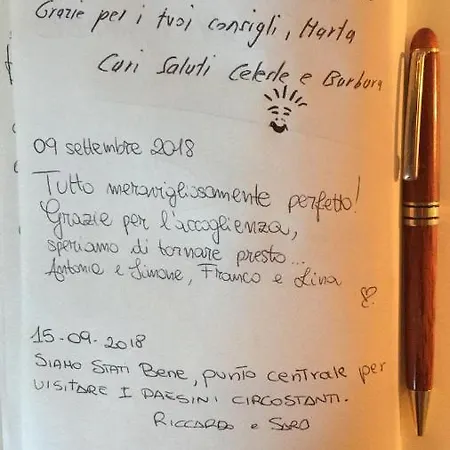 Grazie per i tuoi consigli, Marta
Cari Saluti Celeste e Barbara
09 settembre 2018
Tutto meravigliosamente perfetto!
Grazie per l'accoglienza,
speriamo di tornare presto...
Antonia e Simone, Franco e Lina
15-09-2018
SIAMO STATI BENE, PUNTO CENTRALE per
VISITARE I PAESINI CIRCOSTANTI.
RICCARDO e SARA